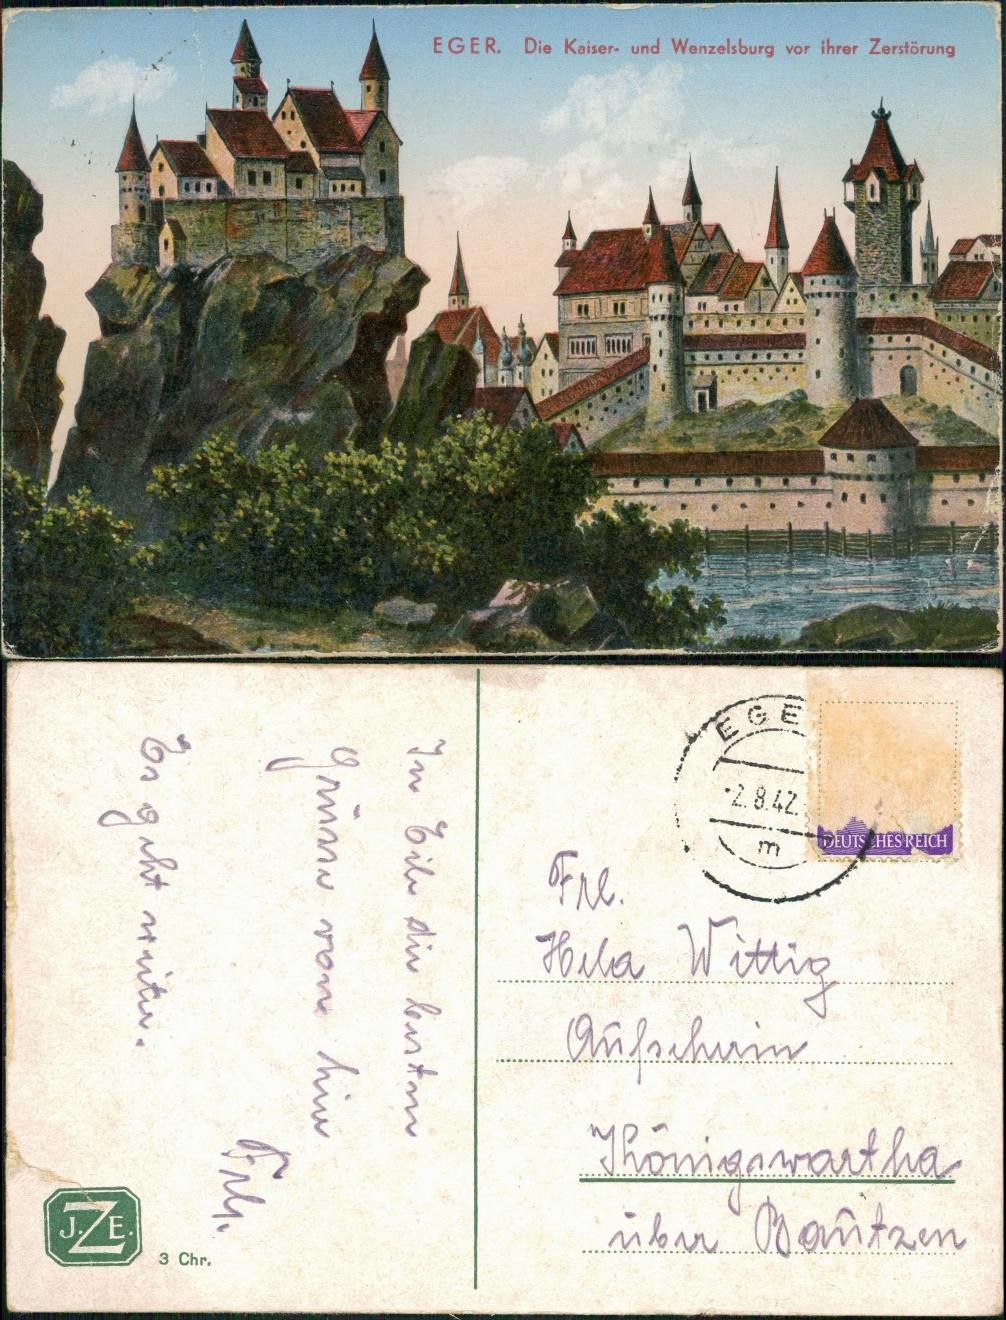 EGER. Die Kaiser- und Wenzelsburg vor ihrer Zerstörung
EGE
2.8.42
m
DEUTSCHES REICH
In Eile die besten
Grüsse von hier
Es geht weiter.
Frl.
Wittig
Königswartha
über Bautzen
J.Z.E.
3 Chr.